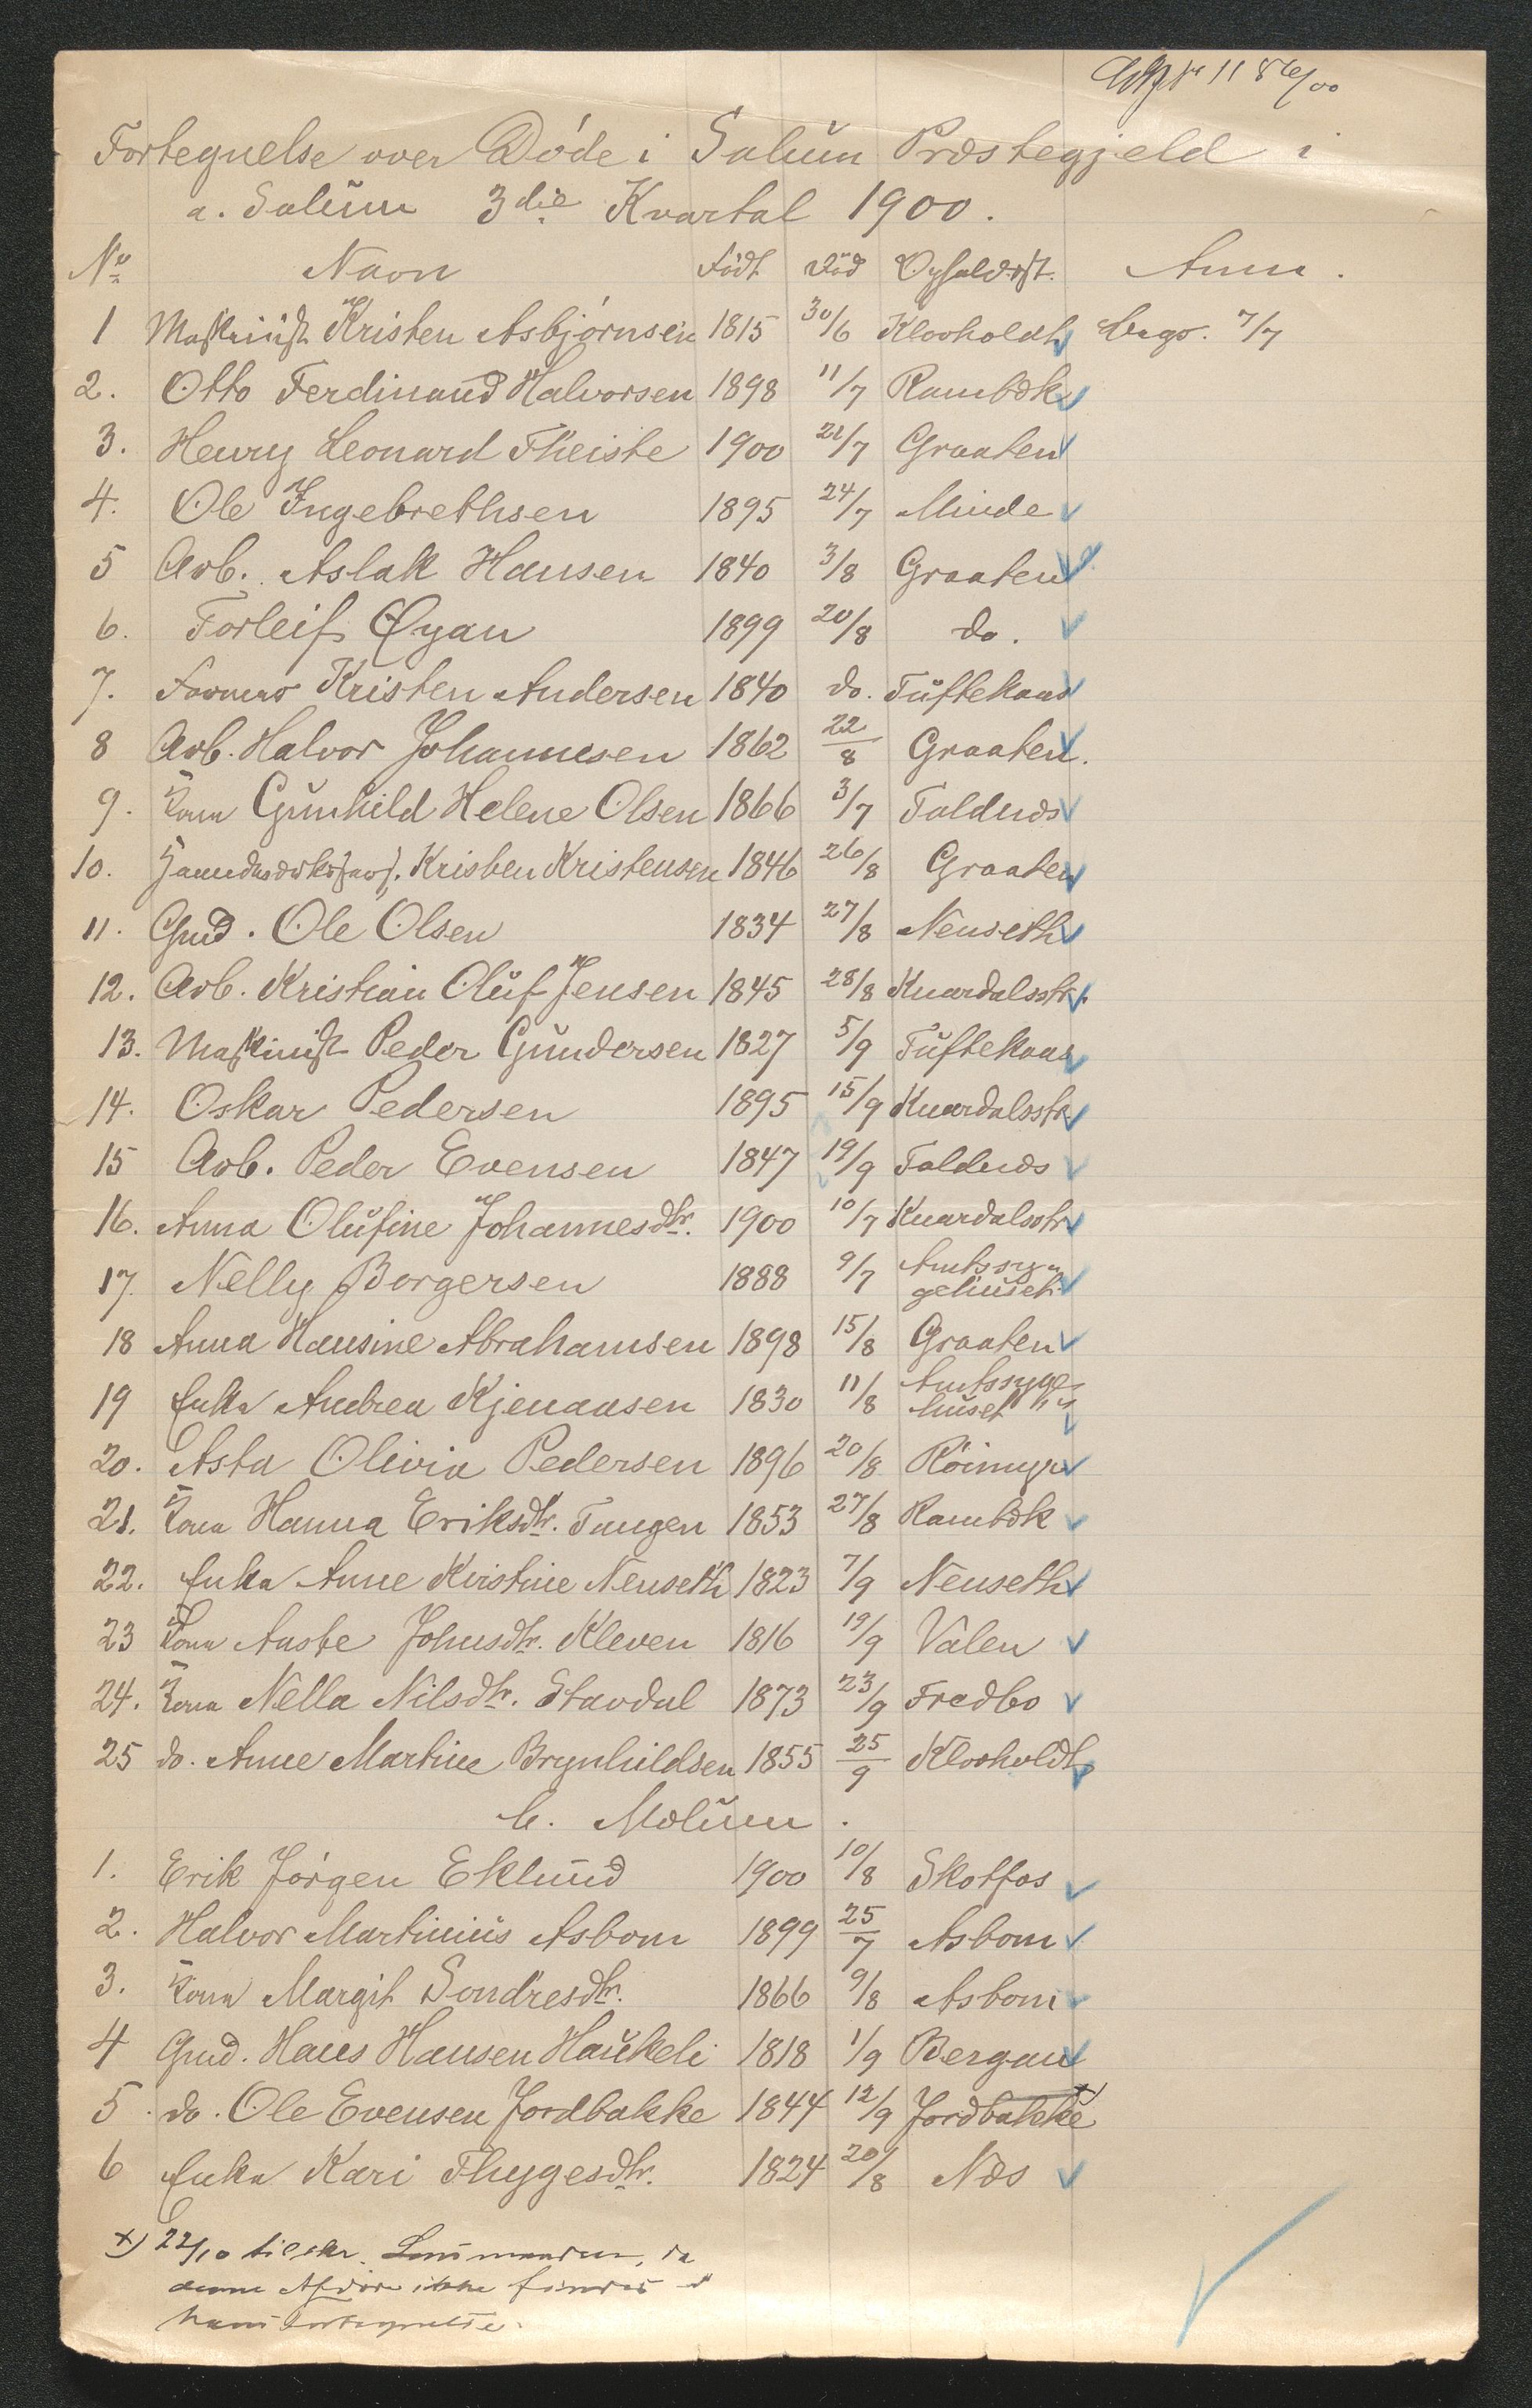 1186/00
Fortegnelse over Døde i Solum Præstegjeld i
a. Solum 3die Kvartal 1900.
No Navn Født Død Opholdsst. Anm.
1 Maskinist Kristen Asbjørnsen 1815 30/6 Klovholdt begr. 7/7
2. Otto Ferdinand Halvorsen 1898 11/7 Rambæk
3. Henry Leonard Theiste 1900 21/7 Graaten
4. Ole Ingebrethsen 1895 24/7 Minde
5 Arb. Aslak Hansen 1840 3/8 Graaten
6. Torleif Øyan 1899 20/8 do.
7. Former Kristen Andersen 1840 do. Tuftekaas
8 Arb. Halvor Johannesen 1862 22/8 Graaten.
9. Kone Gunhild Helene Olsen 1866 3/7 Toldnæs
10. Kristen Kristensen 1846 26/8 Graaten
11. Gmd. Ole Olsen 1834 27/8 Nenseth
12. Arb. Kristian Oluf Jensen 1845 28/8 Knardalsstr.
13. Maskinist Peder Gundersen 1827 5/9 Tuftekaas
14. Oskar Pedersen 1895 15/9 Knardalsstr
15 Arb. Peder Evensen 1847 19/9 Toldnæs
16. Anna Olufine Johannesdtr. 1900 10/7 Knardalsstr
17. Nelly Borgersen 1888 9/7 Amtssy
gehuset
18 Anna Hansine Abrahamsen 1898 15/8 Graaten
19 Enke Andrea Kjenaasen 1830 11/8 Amtssyge
huset
20. Asta Olivia Pedersen 1896 20/8 Röimyr
21. Kone Hanna Eriksdtr. Tangen 1853 27/8 Rambæk
22. Enke Anne Kirstine Nenseth 1823 7/9 Nenseth
23 Kone Aaste Johnsdtr. Kleven 1816 19/9 Valen
24. Kone Nella Nilsdtr. Stavdal 1873 23/9 Fredbo
25 do. Anne Martine Brynhildsen 1855 25/9 Klovholdt
b. Melum.
1. Erik Jørgen Eklund 1900 10/8 Skotfos
2. Halvor Martinius Asbom 1899 25/7 Asbom
3. Kone Margit Sondresdtr. 1866 9/8 Asbom
4 Gmd. Hans Hansen Haukeli 1818 1/9 Bergan
5. do. Ole Evensen Jordbakke 1844 12/9 Jordbakke x)
6 Enke Kari Thygesdtr. 1824 20/8 Næs
x) 22/10 tilskr. Lensmanden, da
denne Afdøde ikke findes i
hans Fortegnelse.